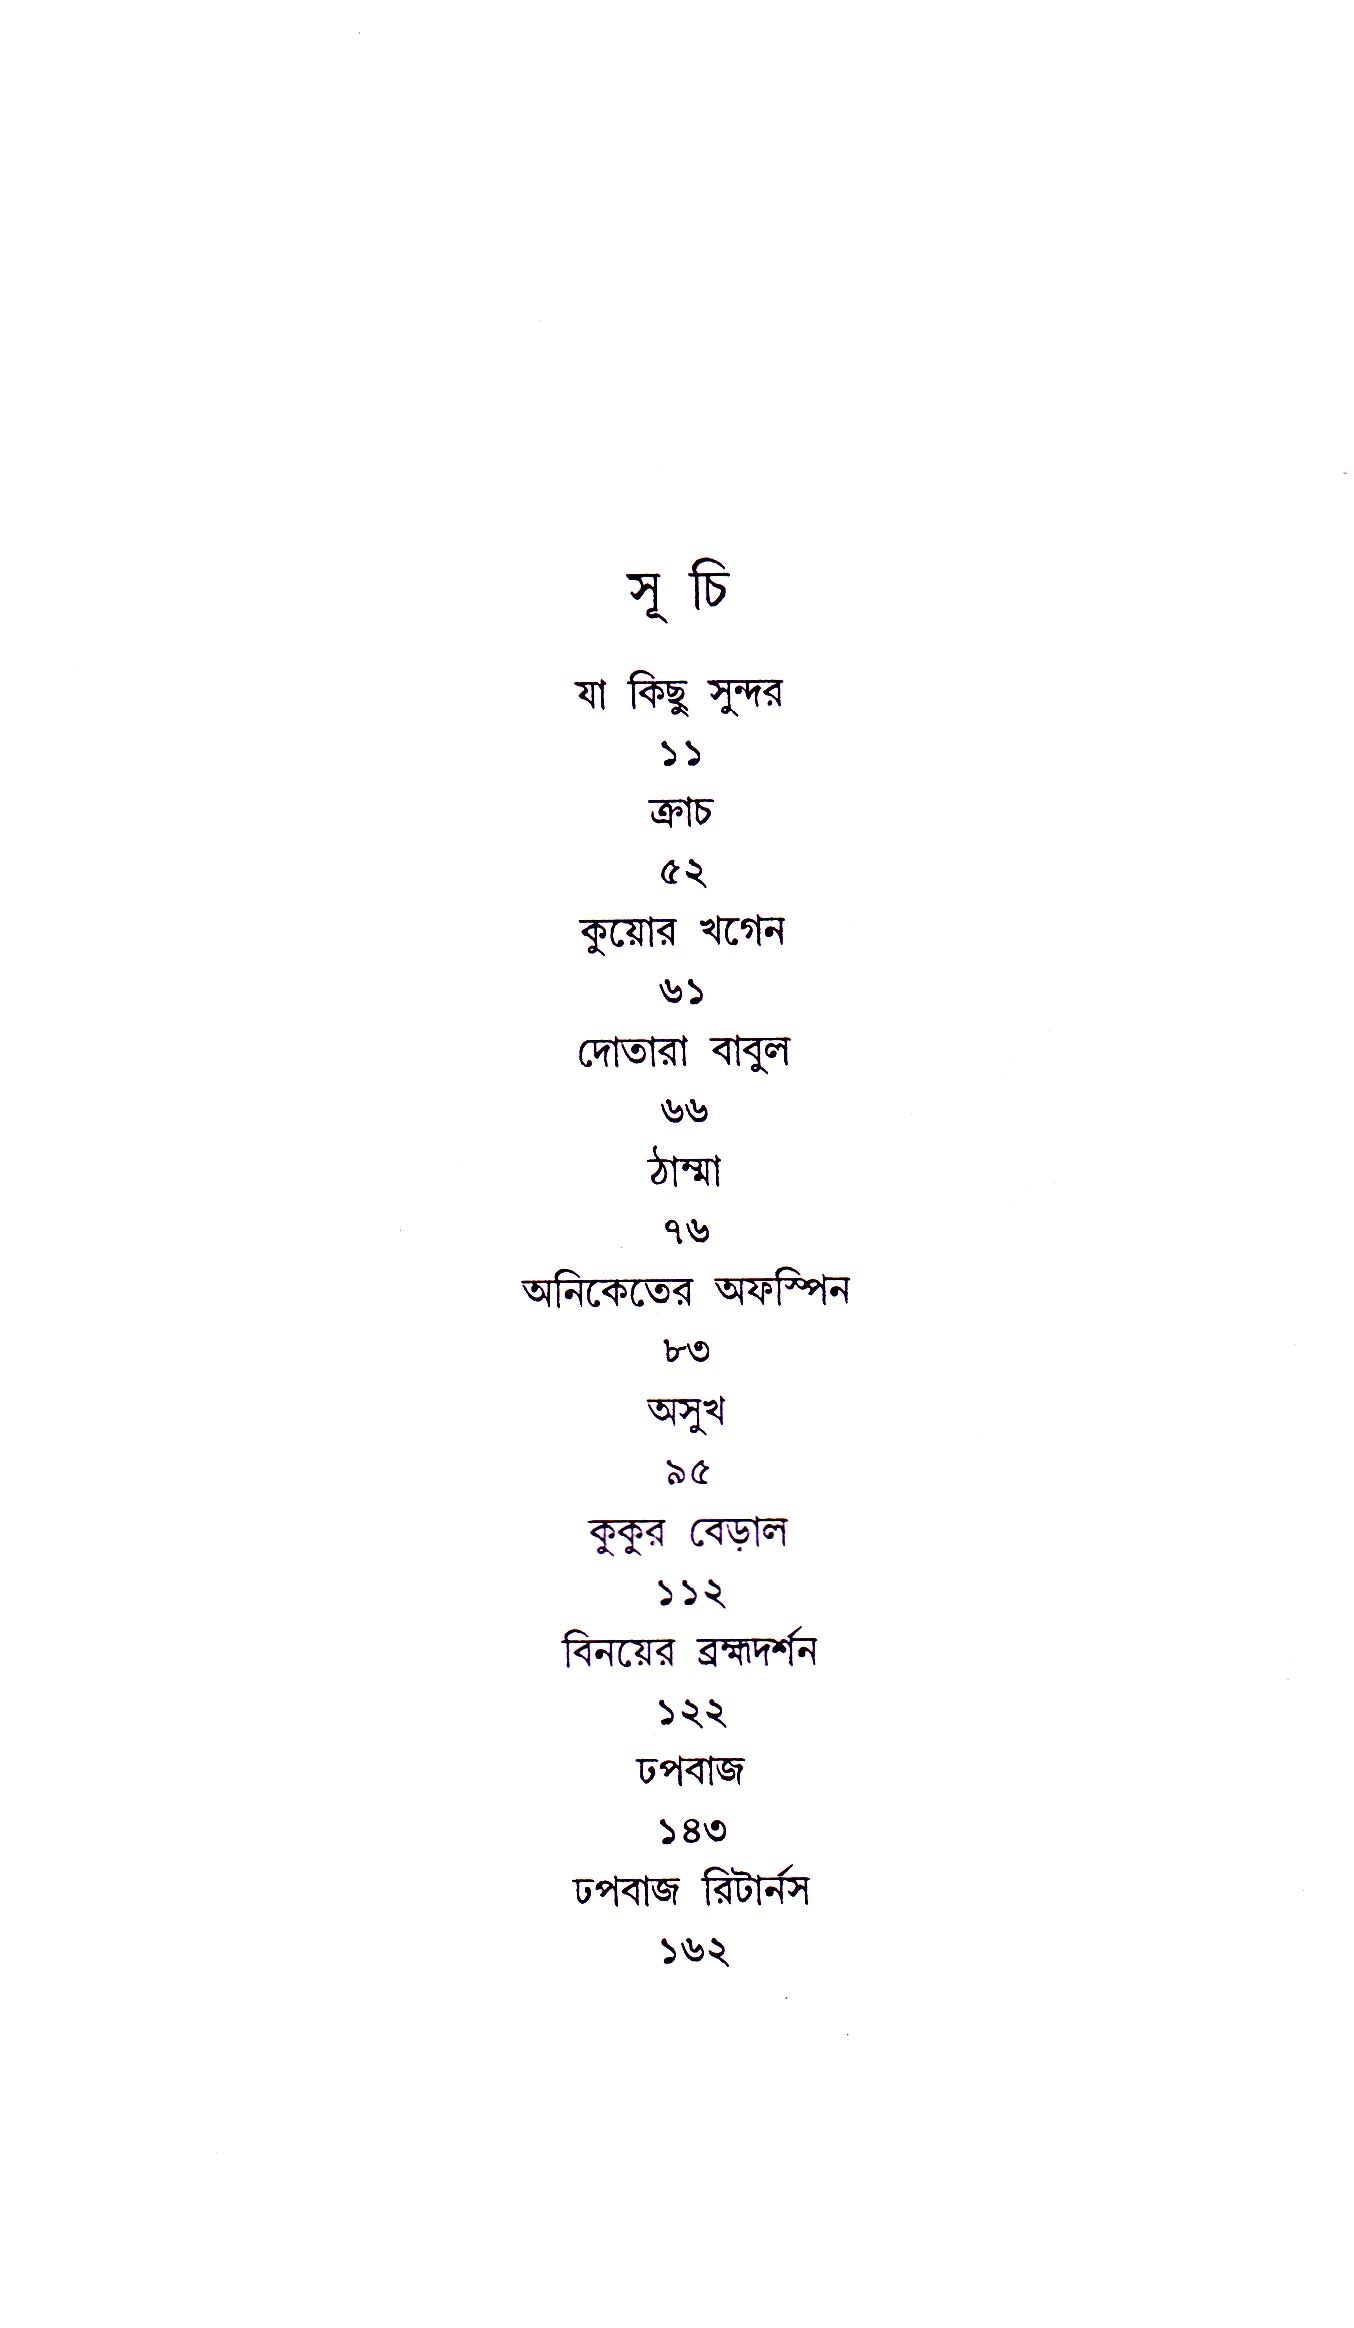 সূ চি
যা কিছু সুন্দর
১১
ক্রাচ
৫২
কুয়োর খগেন
৬১
দোতারা বাবুল
৬৬
ঠাম্মা
৭৬
অনিকেতের অফস্পিন
৮৩
অসুখ
৯৫
কুকুর বেড়াল
১১২
বিনয়ের ব্রহ্মদর্শন
১২২
ঢপবাজ
১৪৩
ঢপবাজ রিটার্নস
১৬২